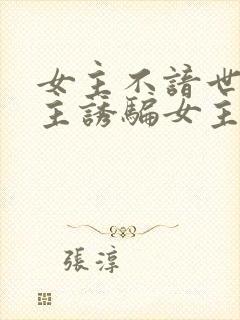 女主不諳世
主誘騙女主
張淳